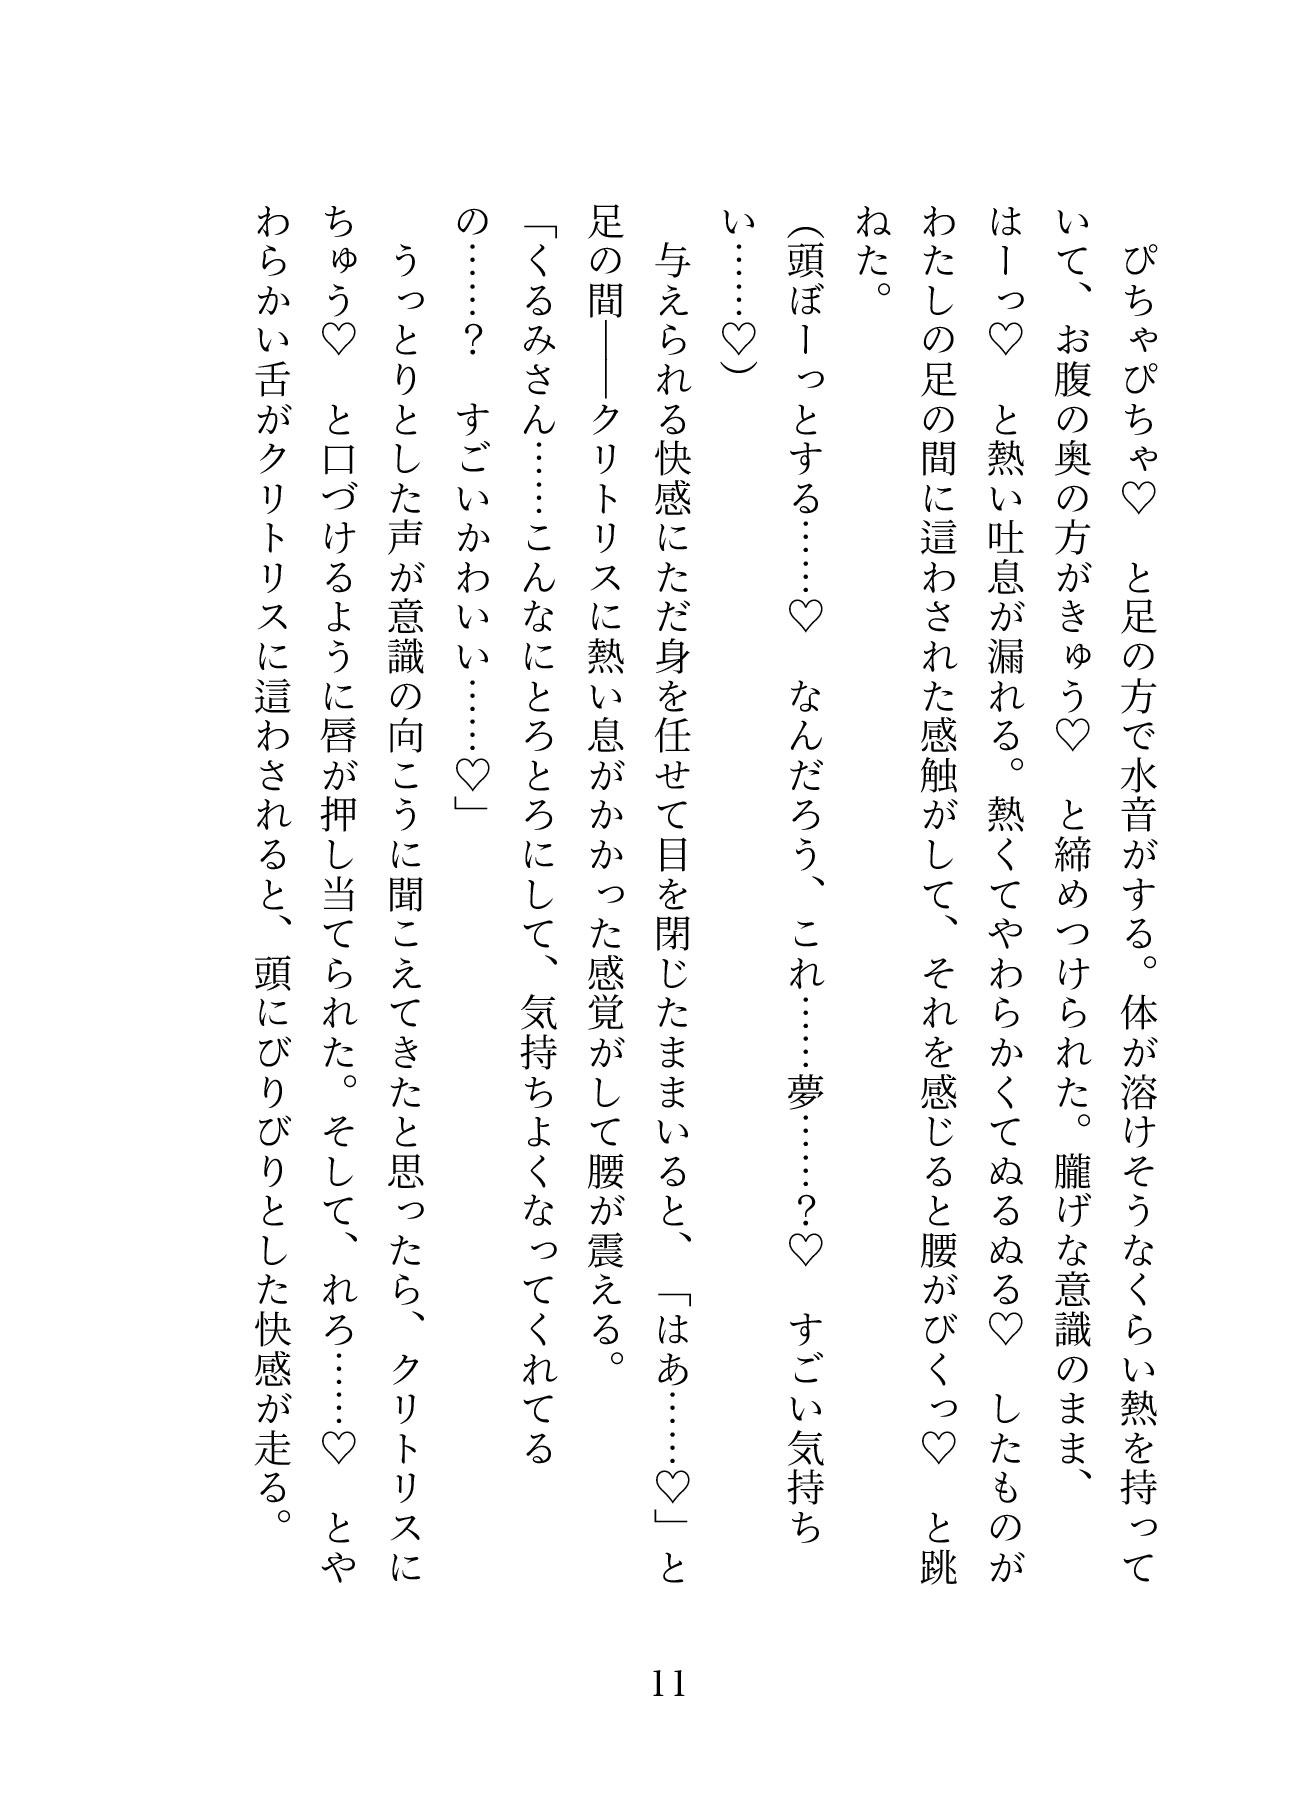 ぴちゃぴちゃ♡　と足の方で水音がする。体が溶けそうなくらい熱を持って
いて、お腹の奥の方がきゅう♡　と締めつけられた。朧げな意識のまま、
はーっ♡　と熱い吐息が漏れる。熱くてやわらかくてぬるぬる♡　したものが
わたしの足の間に這わされた感触がして、それを感じると腰がびくっ♡　と跳
ねた。
（頭ぼーっとする……♡　なんだろう、これ……夢……？♡　すごい気持ち
い……♡）
与えられる快感にただ身を任せて目を閉じたままいると、「はあ……♡」と
足の間――クリトリスに熱い息がかかった感覚がして腰が震える。
「くるみさん……こんなにとろとろにして、気持ちよくなってくれてる
の……？　すごいかわいい……♡」
うっとりとした声が意識の向こうに聞こえてきたと思ったら、クリトリスに
ちゅう♡　と口づけるように唇が押し当てられた。そして、れろ……♡　とや
わらかい舌がクリトリスに這わされると、頭にびりびりとした快感が走る。
11